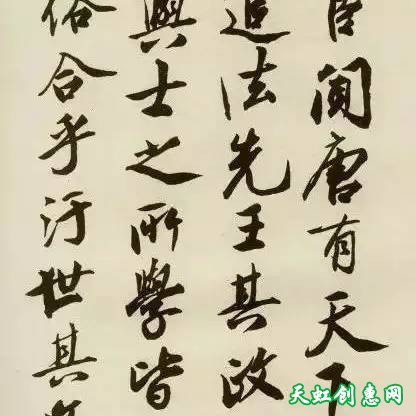 臣聞唐有天下
追法先王其政
興士之所學皆
俗合乎汙世其
天虹创惠网